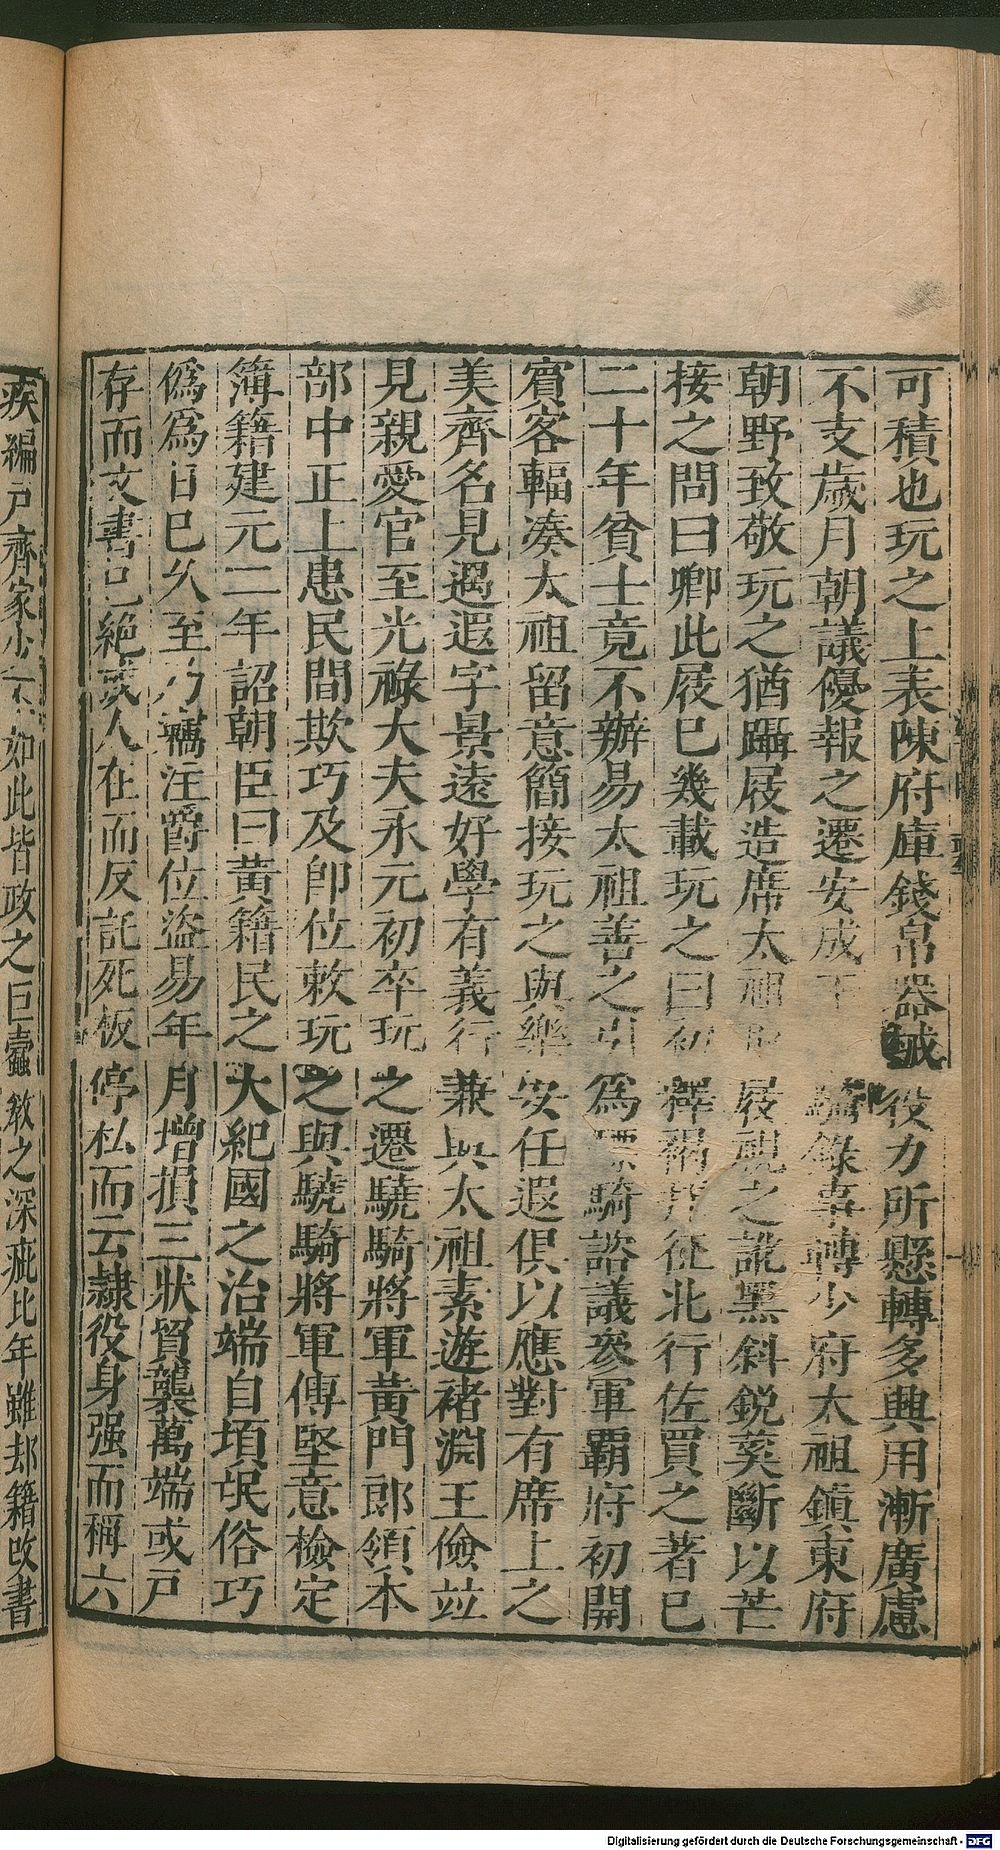 可積也玩之上表陳府庫錢帛器械役力所懸轉多興用漸廣慮
不支歲月朝議優報之遷安成王 錄事轉少府太祖鎮東府
朝野致敬玩之猶躡屐造席太祖 屐視之訛黑斜銳蒵斷以芒
接之問曰卿此屐已幾載玩之曰初釋褐拜征北行佐買之著已
二十年貧士竟不辦易太祖善之引爲驃騎諮議參軍霸府初開
賓客輻湊太祖留意簡接玩之與樂安任遐俱以應對有席上之
美齊名見遇遐字景遠好學有義行兼與太祖素遊褚淵王儉竝
見親愛官至光祿大夫永元初卒玩之遷驍騎將軍黃門郎領本
部中正上患民間欺巧及卽位敕玩之與驍騎將軍傅堅意檢定
簿籍建元二年詔朝臣曰黃籍民之大紀國之治端自頃氓俗巧
僞爲日已久至乃竊注爵位盜易年月增損三狀貿襲萬端或戶
存而文書已絕或人在而反託死板停私而云隸役身强而稱六
疾編戶齊家少不如此皆政之巨蠹敎之深疵比年雖却籍改書
Digitalisierung gefördert durch die Deutsche Forschungsgemeinschaft - DFG